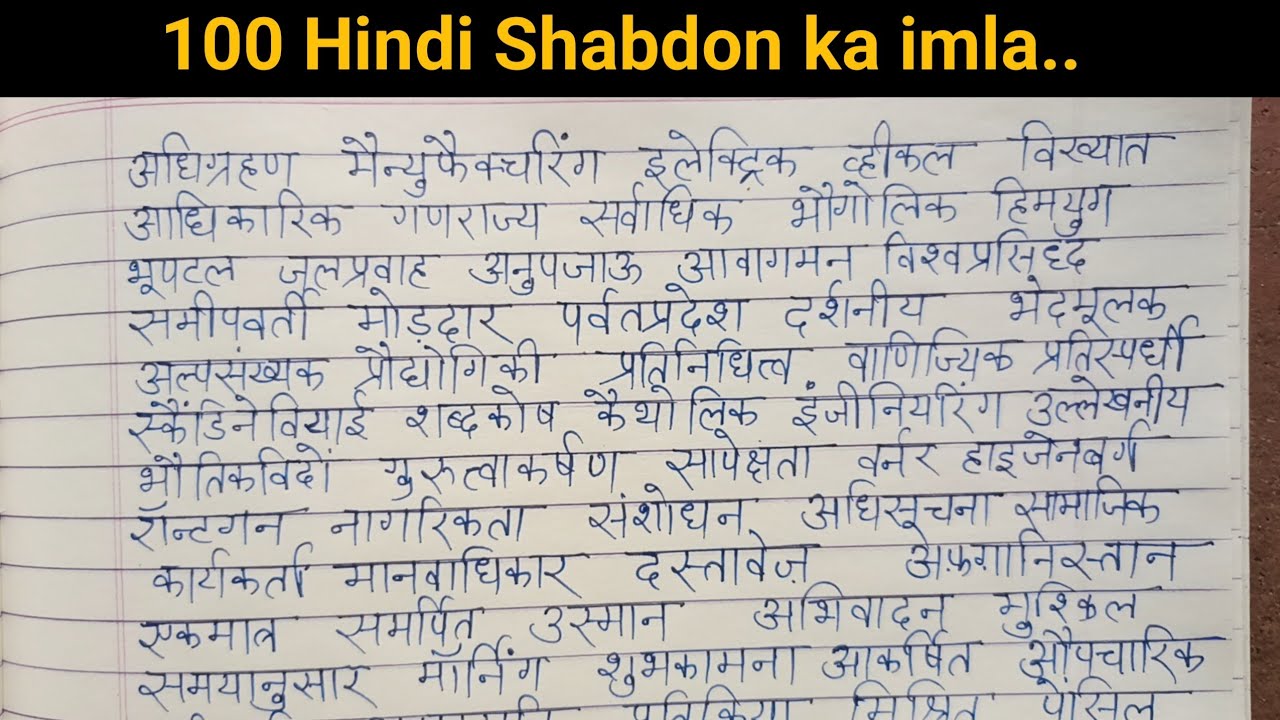 100 Hindi Shabdon ka imla..
अधिग्रहण मैन्युफैक्चरिंग इलेक्ट्रिक व्हीकल विख्यात
आधिकारिक गणराज्य सर्वाधिक भौगोलिक हिमयुग
भूपटल जलप्रवाह अनुपजाऊ आवागमन विश्वप्रसिध्द
समीपवर्ती मोड़दार पर्वतप्रदेश दर्शनीय भेदमूलक
अल्पसंख्यक प्रौद्योगिकी प्रतिनिधित्व वाणिज्यिक प्रतिस्पर्धी
स्कैंडिनेवियाई शब्दकोष कैथोलिक इंजीनियरिंग उल्लेखनीय
भौतिकविदों गुरुत्वाकर्षण सापेक्षता वर्नर हाइजेनबर्ग
रॉन्टगन नागरिकता संशोधन अधिसूचना सामाजिक
कार्यकर्ता मानवाधिकार दस्तावेज़ अफ़ग़ानिस्तान
एकमात्र समर्पित उस्मान अभिवादन मुश्किल
समयानुसार मॉर्निंग शुभकामना आकर्षित औपचारिक
प्रतिक्रिया मिश्रित पेंसिल